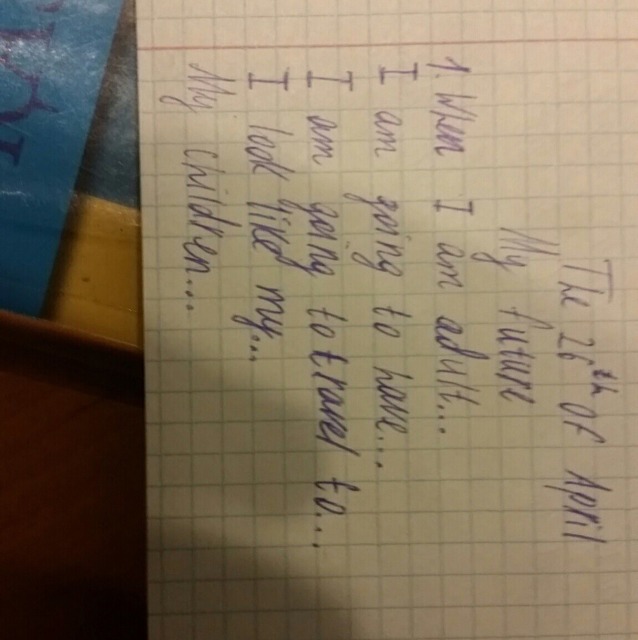 The 26th of April
My future
1. When I am adult...
I am going to have...
I am going to travel to...
I look liked my...
My children...